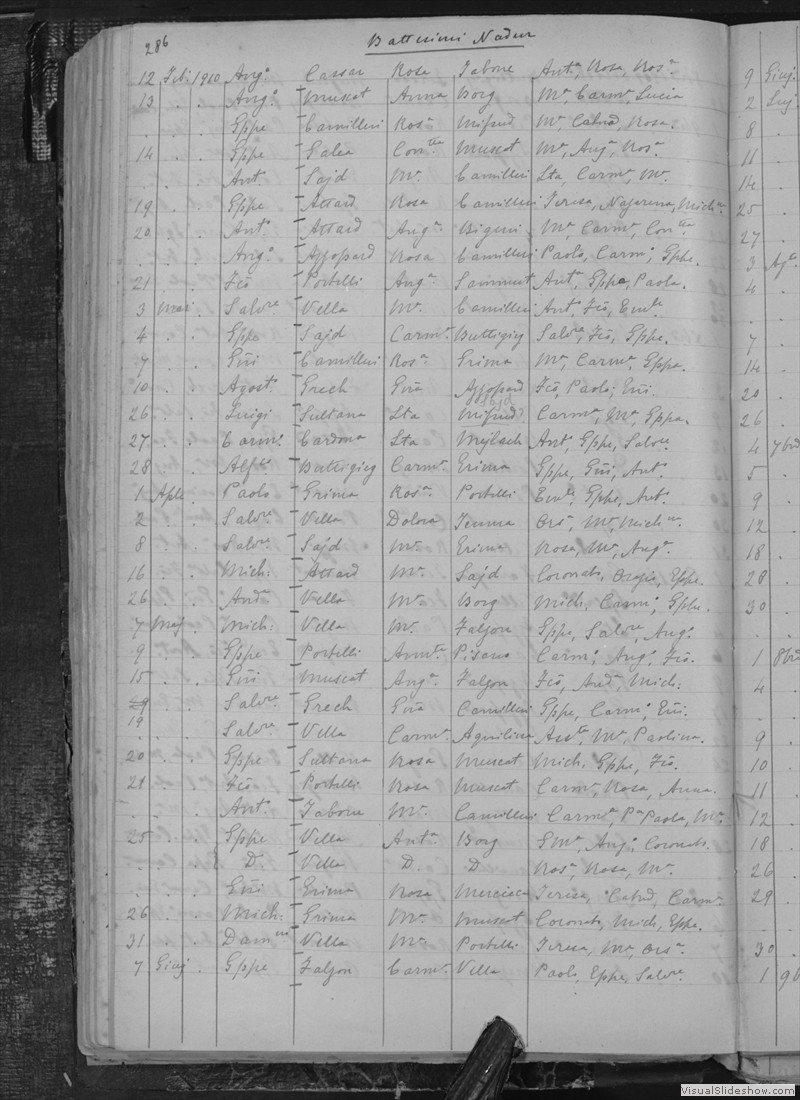 286
Battesimi Nadur
12 Feb. 1910 Ang.o Cassar Rosa Tabone Ant.a, Rosa, Ros.a
13 . . Ang.o Muscat Anna Borg M.a, Carm.a, Lucia
. . . Gppe Camilleri Ros.a Mifsud M.a, Rosa.
14 . . Gppe Galea Con.tta Muscat M.a, Ang.a, Ros.a
. . . Ant. Sajd M.a Camilleri Lta, Carm.a, M.a
19 . . Gppe Attard Rosa Camilleri Teresa, Nazerena, Mich.a
20 . . Ant.o Attard Ang.a M.a, Carm.a, Con.tta
. . . Ang.o Azzopard Rosa Camilleri Paolo, Carm.o, Gppe.
21 . . Fco Portelli Ang.a Sammut Ant., Gppe, Paola.
3 Mar. . Salv.re Vella M.a Camilleri Ant., Fco, Em.le
4 . . Gppe Sajd Carm.a Buttigieg Salv.re, Fco, Gppe.
7 . . Gñi Camilleri Ros.a Grima M.a, Carm.a, Gppa.
10 . . Agost.o Grech Gña Azzopard Fco, Paolo, Gñi.
26 . . Luigi Sultana Lta Mifsud Carm.a, M.a, Gppa.
27 . . Carm.o Cardona Lta Mejlach Ant., Gppe, Salv.re
28 . . Alf.so Buttigieg Carm.a Grima Gppe, Gñi, Ant.
1 Aple . Paolo Grima Ros.a Portelli Em.le, Gppe, Ant.
2 . . Salv.re Vella Dolora Tumma Ors.a, M.a, Mich.na
8 . . Salv.re Sajd M.a Grima Rosa, M.a, Ang.a
16 . . Mich: Attard M.a Sajd Coronato, Orazio, Gppe.
26 . . And.a Vella M.a Borg Mich, Carm.o, Gppe.
7 Maj . Mich: Vella M.a Falzon Gppe, Salv.re, Ang.o
9 . . Gppe Portelli Annta Pisano Carm.o, Ang.o, Fco.
15 . . Gñi Muscat Ang.a Falzon Fco, And.a, Mich:
19 . . Salv.re Grech Gña Camilleri Gppe, Carm.o, Gñi.
. . . Salv.re Vella Carm.a Aquilina M.a, Paolina.
20 . . Gppe Sultana Rosa Muscat Mich, Gppe, Fco.
21 . . Fco Portelli Rosa Muscat Carm.a, Rosa, Anna.
. . . Ant. Tabone M.a Camilleri Carm.a, Paola, M.a
25 . . Gppe Vella Ant.a Borg G M.a, Ang.o, Coronato.
. . . D. Vella D. D Ros.a, Rosa, M.a
. . . Gñi Grima Rosa Mercieca Teresa, Carm.a
26 . . Mich: Grima M.a Muscat Coronato, Mich, Gppe.
31 . . Vella M.a Portelli Teresa, M.a, Ors.a
7 Giuj . Gppe Falzon Carm.a Vella Paolo, Gppe, Salv.re
9 Giuj.
2 Luj
8 .
11 .
14 .
25 .
27 .
3 Ag.to
4 .
7 .
14 .
20 .
26 .
4 7bre
5 .
9 .
12 .
18 .
28 .
30 .
1 8bre
4 .
9 .
10 .
11 .
12 .
18 .
26 .
29 .
30 .
1 9b
VisualSlideshow.com